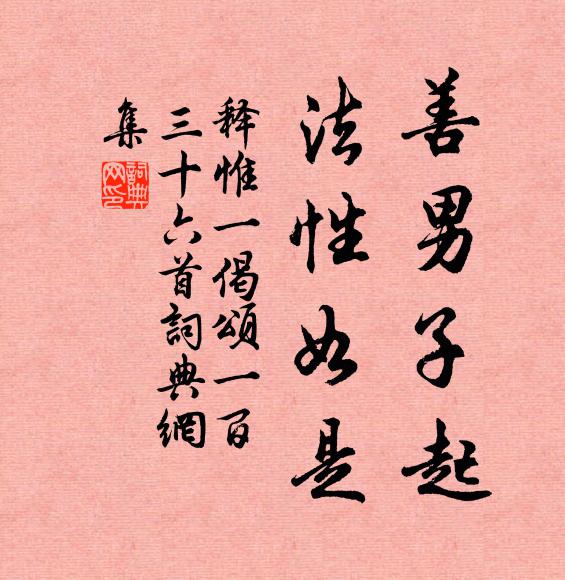 善男子起
法性如是
释惟一偈頌一百
三十六首詞典網
集
詞典
网印